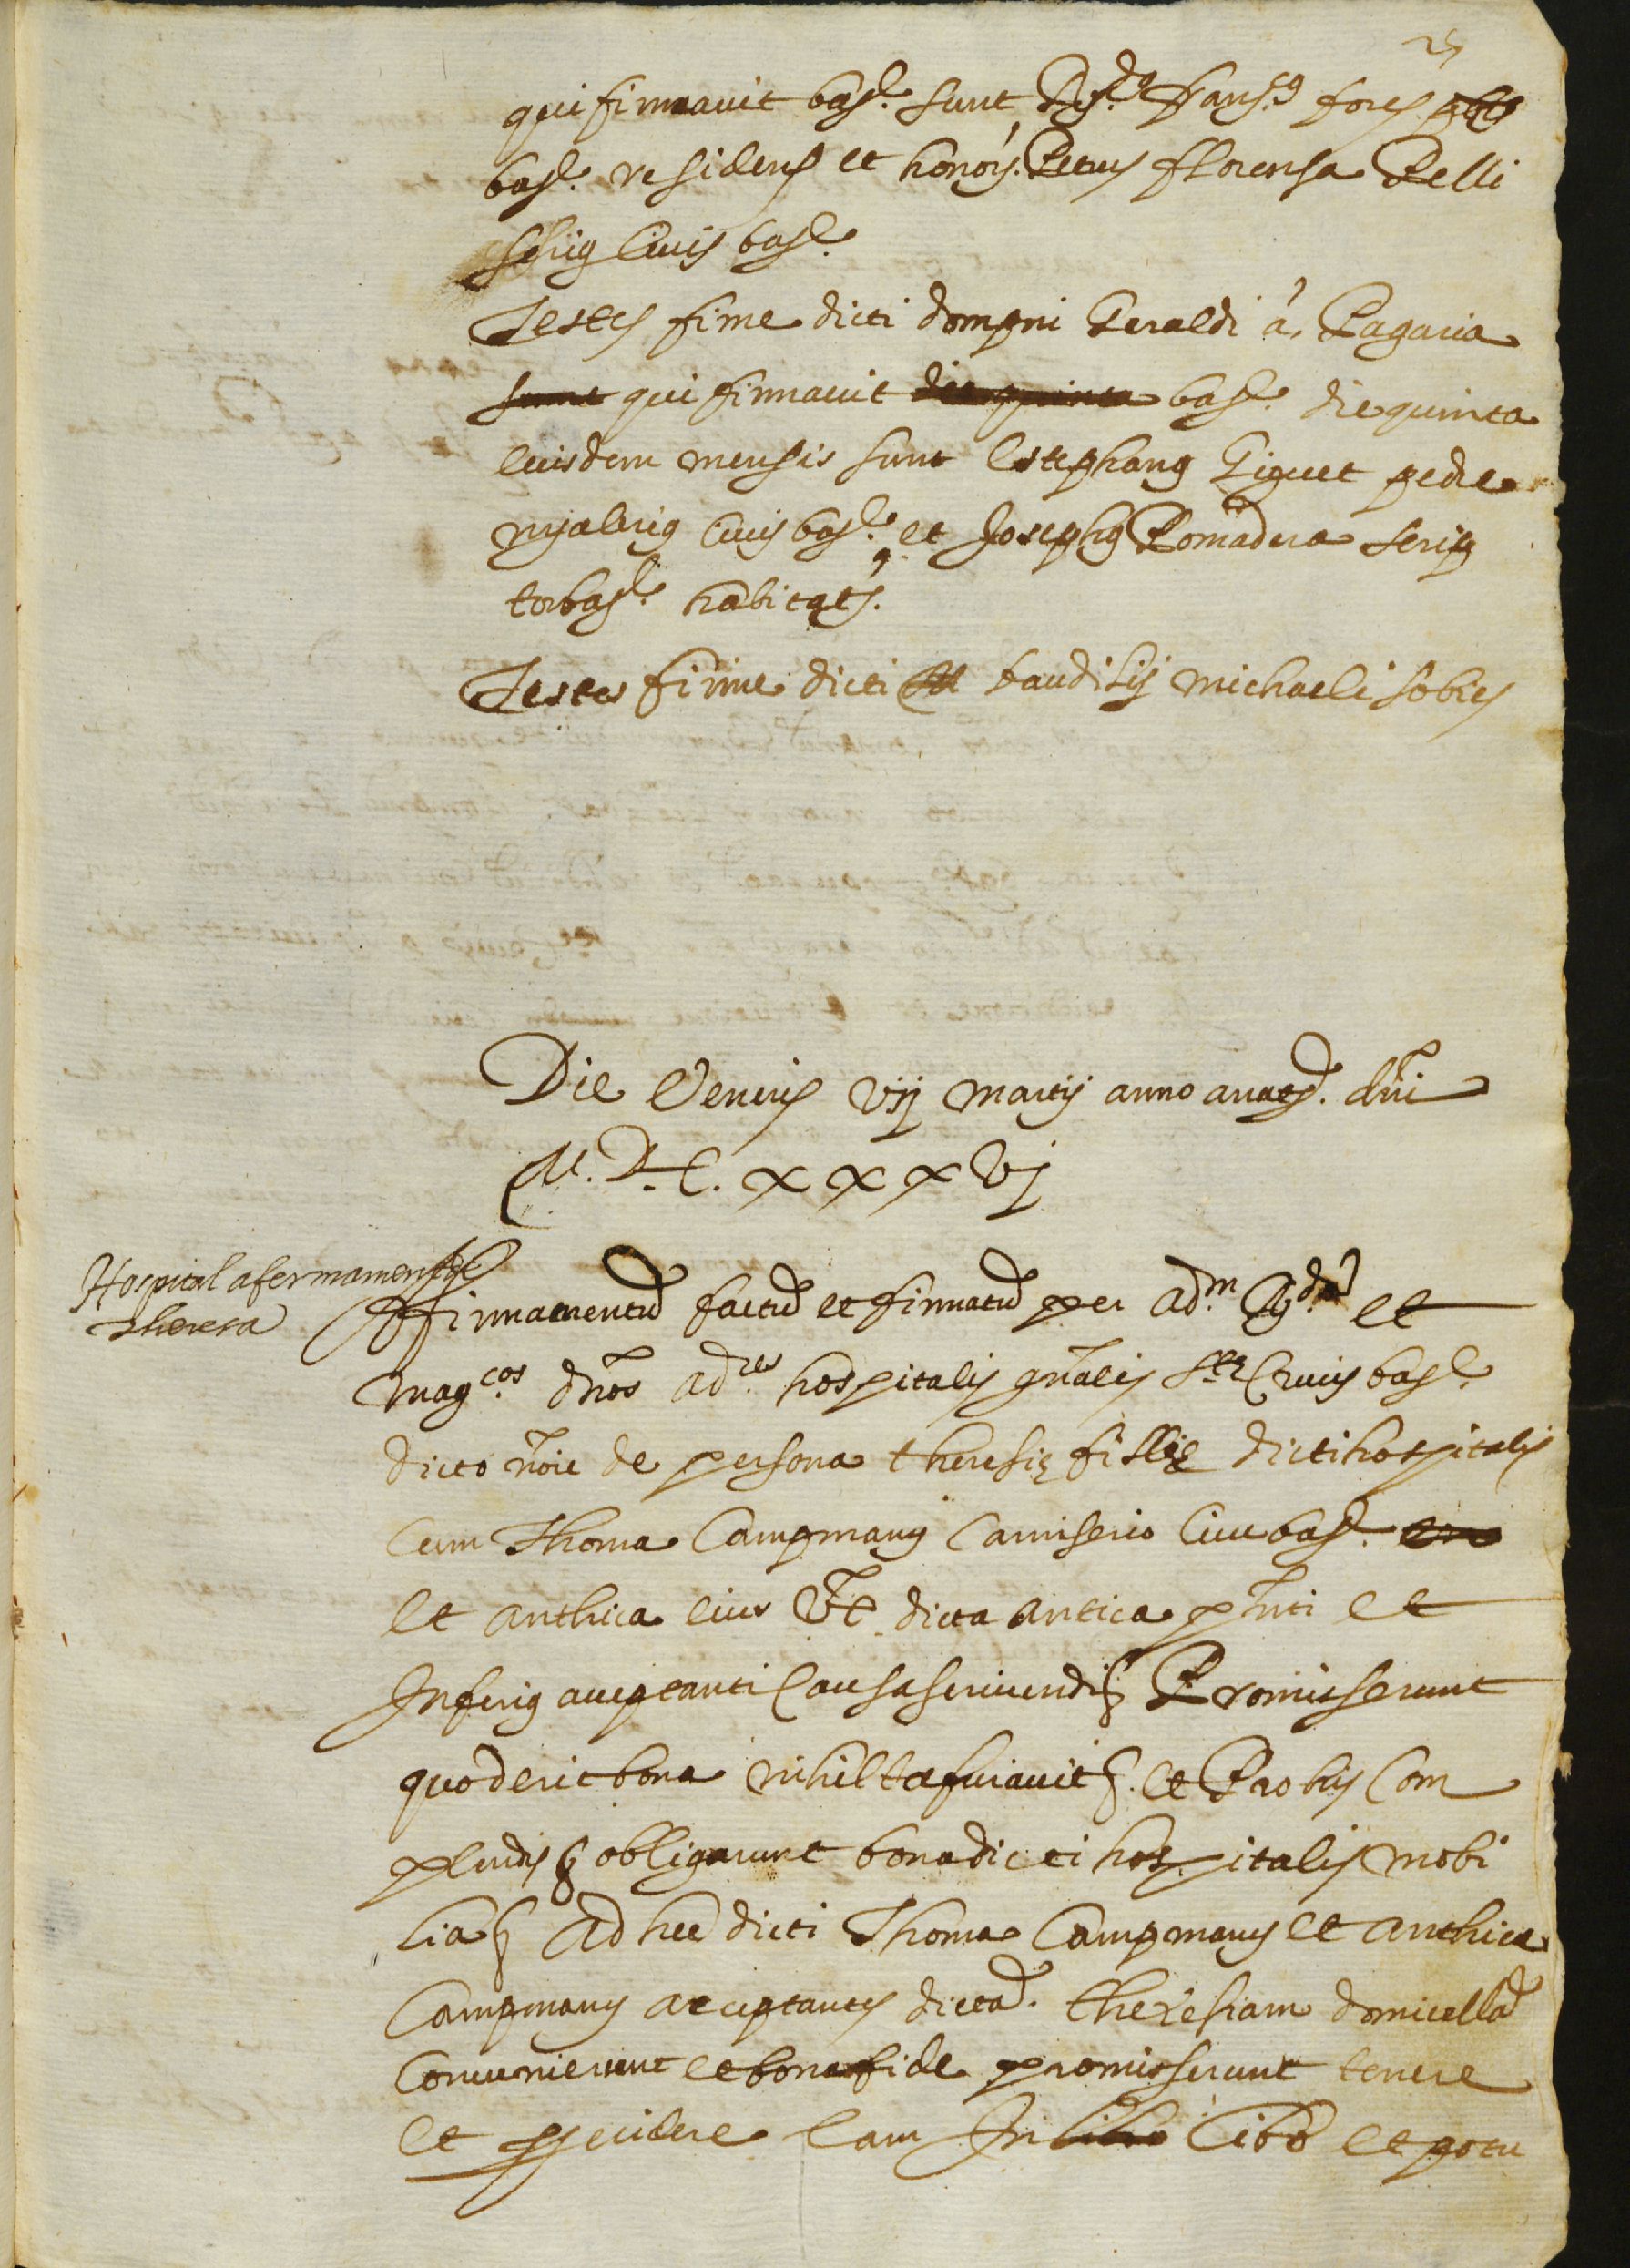 25
qui firmavit bar.ᵉ sunt R.ᵈᵘˢ Fransᶜᵘˢ fores pbr
bar.ᵉ residens et honor. Petrus florensa Pelli
serius civis bar.ᵉ
Testes firme dicti dompni Geraldi à Pagaria
sunt qui firmavit die quinta bar.ᵉ die quinta
eiusdem mensis sunt estephanus Giguet pede
rijalerius civis bar.ᵉ et Josephus Pomadera scrip
tor bar.ᵉ habitats.
Testes firme dicti baudilij michaeli sobies
Die Veneris vij martij anno a nattᵉ. dñi
M.D.C. xxxvj
Hospital afermament de
theresa
Affirmamentũ factũ et firmatũ per adᵐ Rᵈᵒˢ et
magᶜᵒˢ dños adʳᵉˢ hospitalis gñalis Stᵉ Crucis bar.ᵉ
dicto nõie de persona theresię fillię dicti hospitalis
cum Thoma Campmany Camiserio cive bar.ᵉ
et anthica eius Vxe dicta antica pñti et
Inferius acceptanti causa serviendi & Promisserunt
quod erit bona nihil ta furavit &. et Pro his com
plendis & obligarunt bona dicti hospitalis mobi
lia & Ad hec dicti Thoma Campmany et anthica
Campmany acceptantes dictã. theresiam domicellã
convenierunt et bona fide promisserunt tenere
et providere eam In cibo et potu